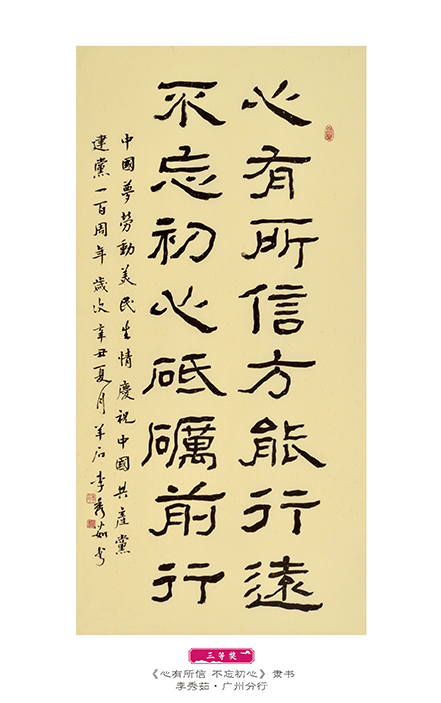 心有所信方能行遠
不忘初心砥礪前行
中國夢勞動美民生情慶祝中國共產黨
建黨一百周年歲次辛丑夏月羊石李秀茹书
三等奖
《心有所信 不忘初心》 隶书
李秀茹·广州分行